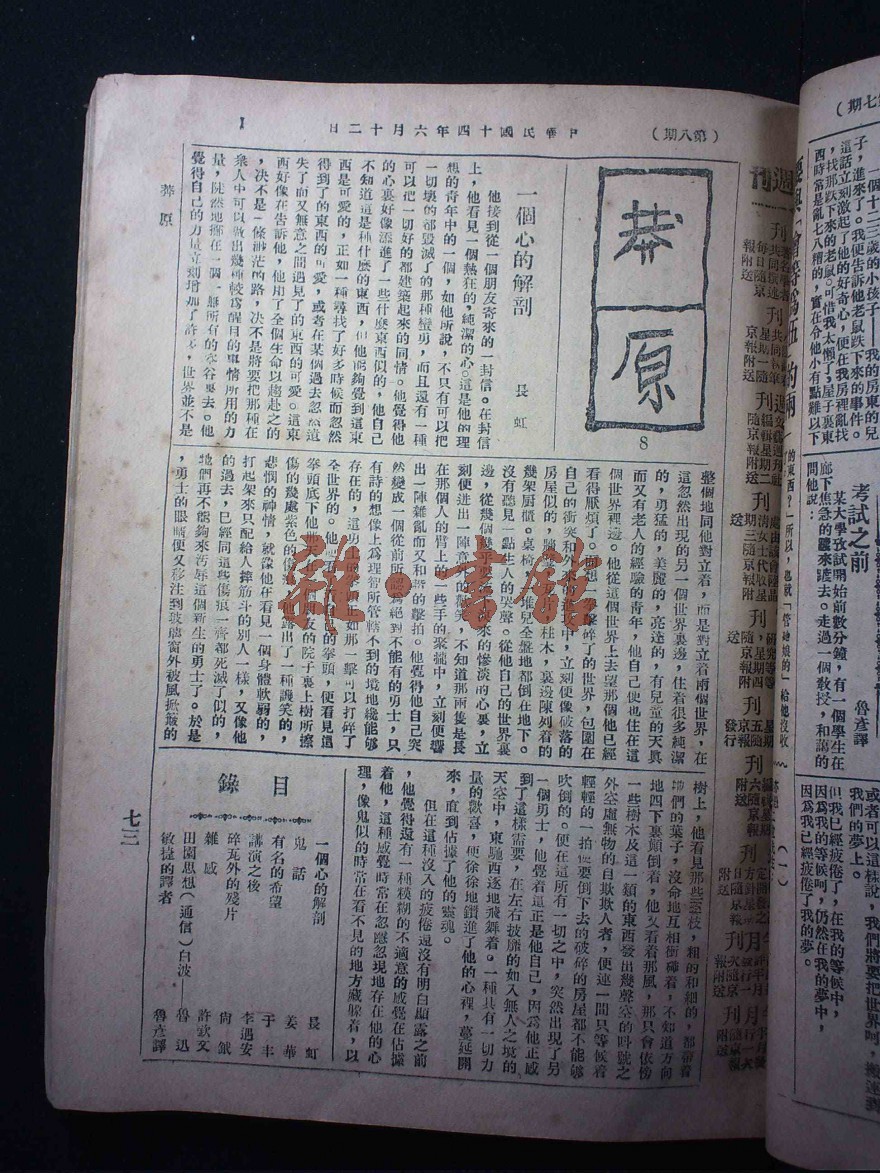 (第八期)
中華民國十四年六月十二日
1
莽原
8
一個心的解剖
長虹
他接到從一個朋友寄來的一封信。在封信
上，他看見一個熱狂的，純潔的心。這是他的理
想的青年中的一個，如他所說，不只有可以把
一切壞的都毀滅了的那種蠻勇，而且還有一種
可以把一切好的都建築起來的同情。他覺得他
的心裏好像添進了一些什麼東西似的，他自己
不知道這是種什麼的東西，但他能夠覺到這東
西是可愛的，正如一種尋找了好多時候而忽然
得到了的東西的可愛，或者在某個過去忽然遺
失了而又無意之間遇見了的東西的可愛。這東
西好像在告訴他，他用了全個生命以趨赴之的
，決不是一條渺茫的路，決不是將要把那種在
衆人中可以做出幾種較爲醒目的事情所用的力
量，陡然地擲在一個一無所有的空谷裏去。他
覺得自己的力量立刻增加了許多，世界並不是
莽原
整個地同他對立着，而是對立着兩個世界，在
這忽然出現的另一個世界裏邊，住着很多純潔
的，勇猛的，美麗的，亮達的，有兒童的天真
而又有老人的經驗的青年，他自己便也住在這
個世界裡邊。他從這個世界上去望那個他已經
看得厭煩了。
自己的衝突和外來的進攻中，立刻便像破落的
柱木，裏邊陳列着的
幾架厨櫃。桌椅，
堆兒全盤地都倒在地下。
沒有聽見一點生人的哭聲。從他自己的世界裏
邊，從幾個
來的慘淡的心裏，立
刻便迸出一陣
微笑，不知道那兩隻是長
在那個人的臂上的一些手的
端中，立刻便響
出一陣雜亂而又和諧的擊拍。他覺得他自己突
然變成一個從前所認爲絕對不能有的勇士，只
有詩的想像上爲理智所管轄不到的境地纔能够
存在的，這勇士
正如那一擊可以打碎了
全世界的。他
自己的拳頭，便看見這
拳頭底下他
朋友的院子裏上樹所擦
傷的幾處紫色的傷
露出了一種譏笑的，
悲憫的神情，就像他在看見一個身體軟弱的，
打起架來只配給人摔筋斗的別人一樣，又像他
的過去，已經同這些傷痕一齊都死滅了似的，
牠們再不能夠來污辱這個新生的勇士了。於是
，勇士的眼睛便又移注到玻璃窗外被風掀簸的
樹上，他看見那些
枝，粗的和細的，都帶着
牠們的葉子，沒命地互相衝碰着，不知道方向
地四下裏顛倒着，他又看着那風，那只會依傍
一些樹木及這一類的東西發出幾聲空的叫號之
外空虛無物的自欺欺人者，便連一間只等候着
輕輕的一拍便要倒下去的破碎的房屋都不能够
吹倒的。便在這所有一切之中，突然出現了另
一個勇士，他覺着這正是他自己，因爲他正感
到了這樣需要，在左右披靡的如入無人之境的
天空中，東馳西逐地飛舞着。一種具有一切力
量的歡喜，便徐徐地鑽進了他的心裡，蔓延開
來，直到佔據了他的靈魂。
但在這種沒入的疲倦還沒有明白顯露之前
，他覺得還有一種模糊的不適意的感覺在佔據
着他，這種感覺時常在忽隱忽現地存在他的心
理，像鬼似的時常在看不見的地方藏躲着，以
目錄
一個心的解剖 長虹
鬼話 姜華
有名的希望 于丰
講演之後 李遇安
碎瓦外的殘片 尚鉞
雜感 許欽文
田園思想（通信）白波——魯迅
敏捷的譯者 魯彥譯
七三
雜·書館
週刊
七期）
一個十二三歲的小孩子——我的房東的兒
子，進來了。我便告訴他老鼠跌下來的事件。
這話立刻激起了他的好奇心，便在我房裡亂找
，找那跌下來的老鼠。可惜我太懶了，屋子裏東
西時常是亂七八糟的，實在令他小有點難以下
考試之前
魯彥譯
某大學攷試開始前數分鐘，有一個學生在
廊下焦急的踱來踱去。走過一個敎授，和藹的
問他說：
或者可以這樣說，我們將要把世界呵，搬運到
我們的夢上。
但我已經疲倦了，在我的等候中，
因爲我的等候呵，仍然在我的夢中，
因爲我已經疲倦了我的夢。
（一）